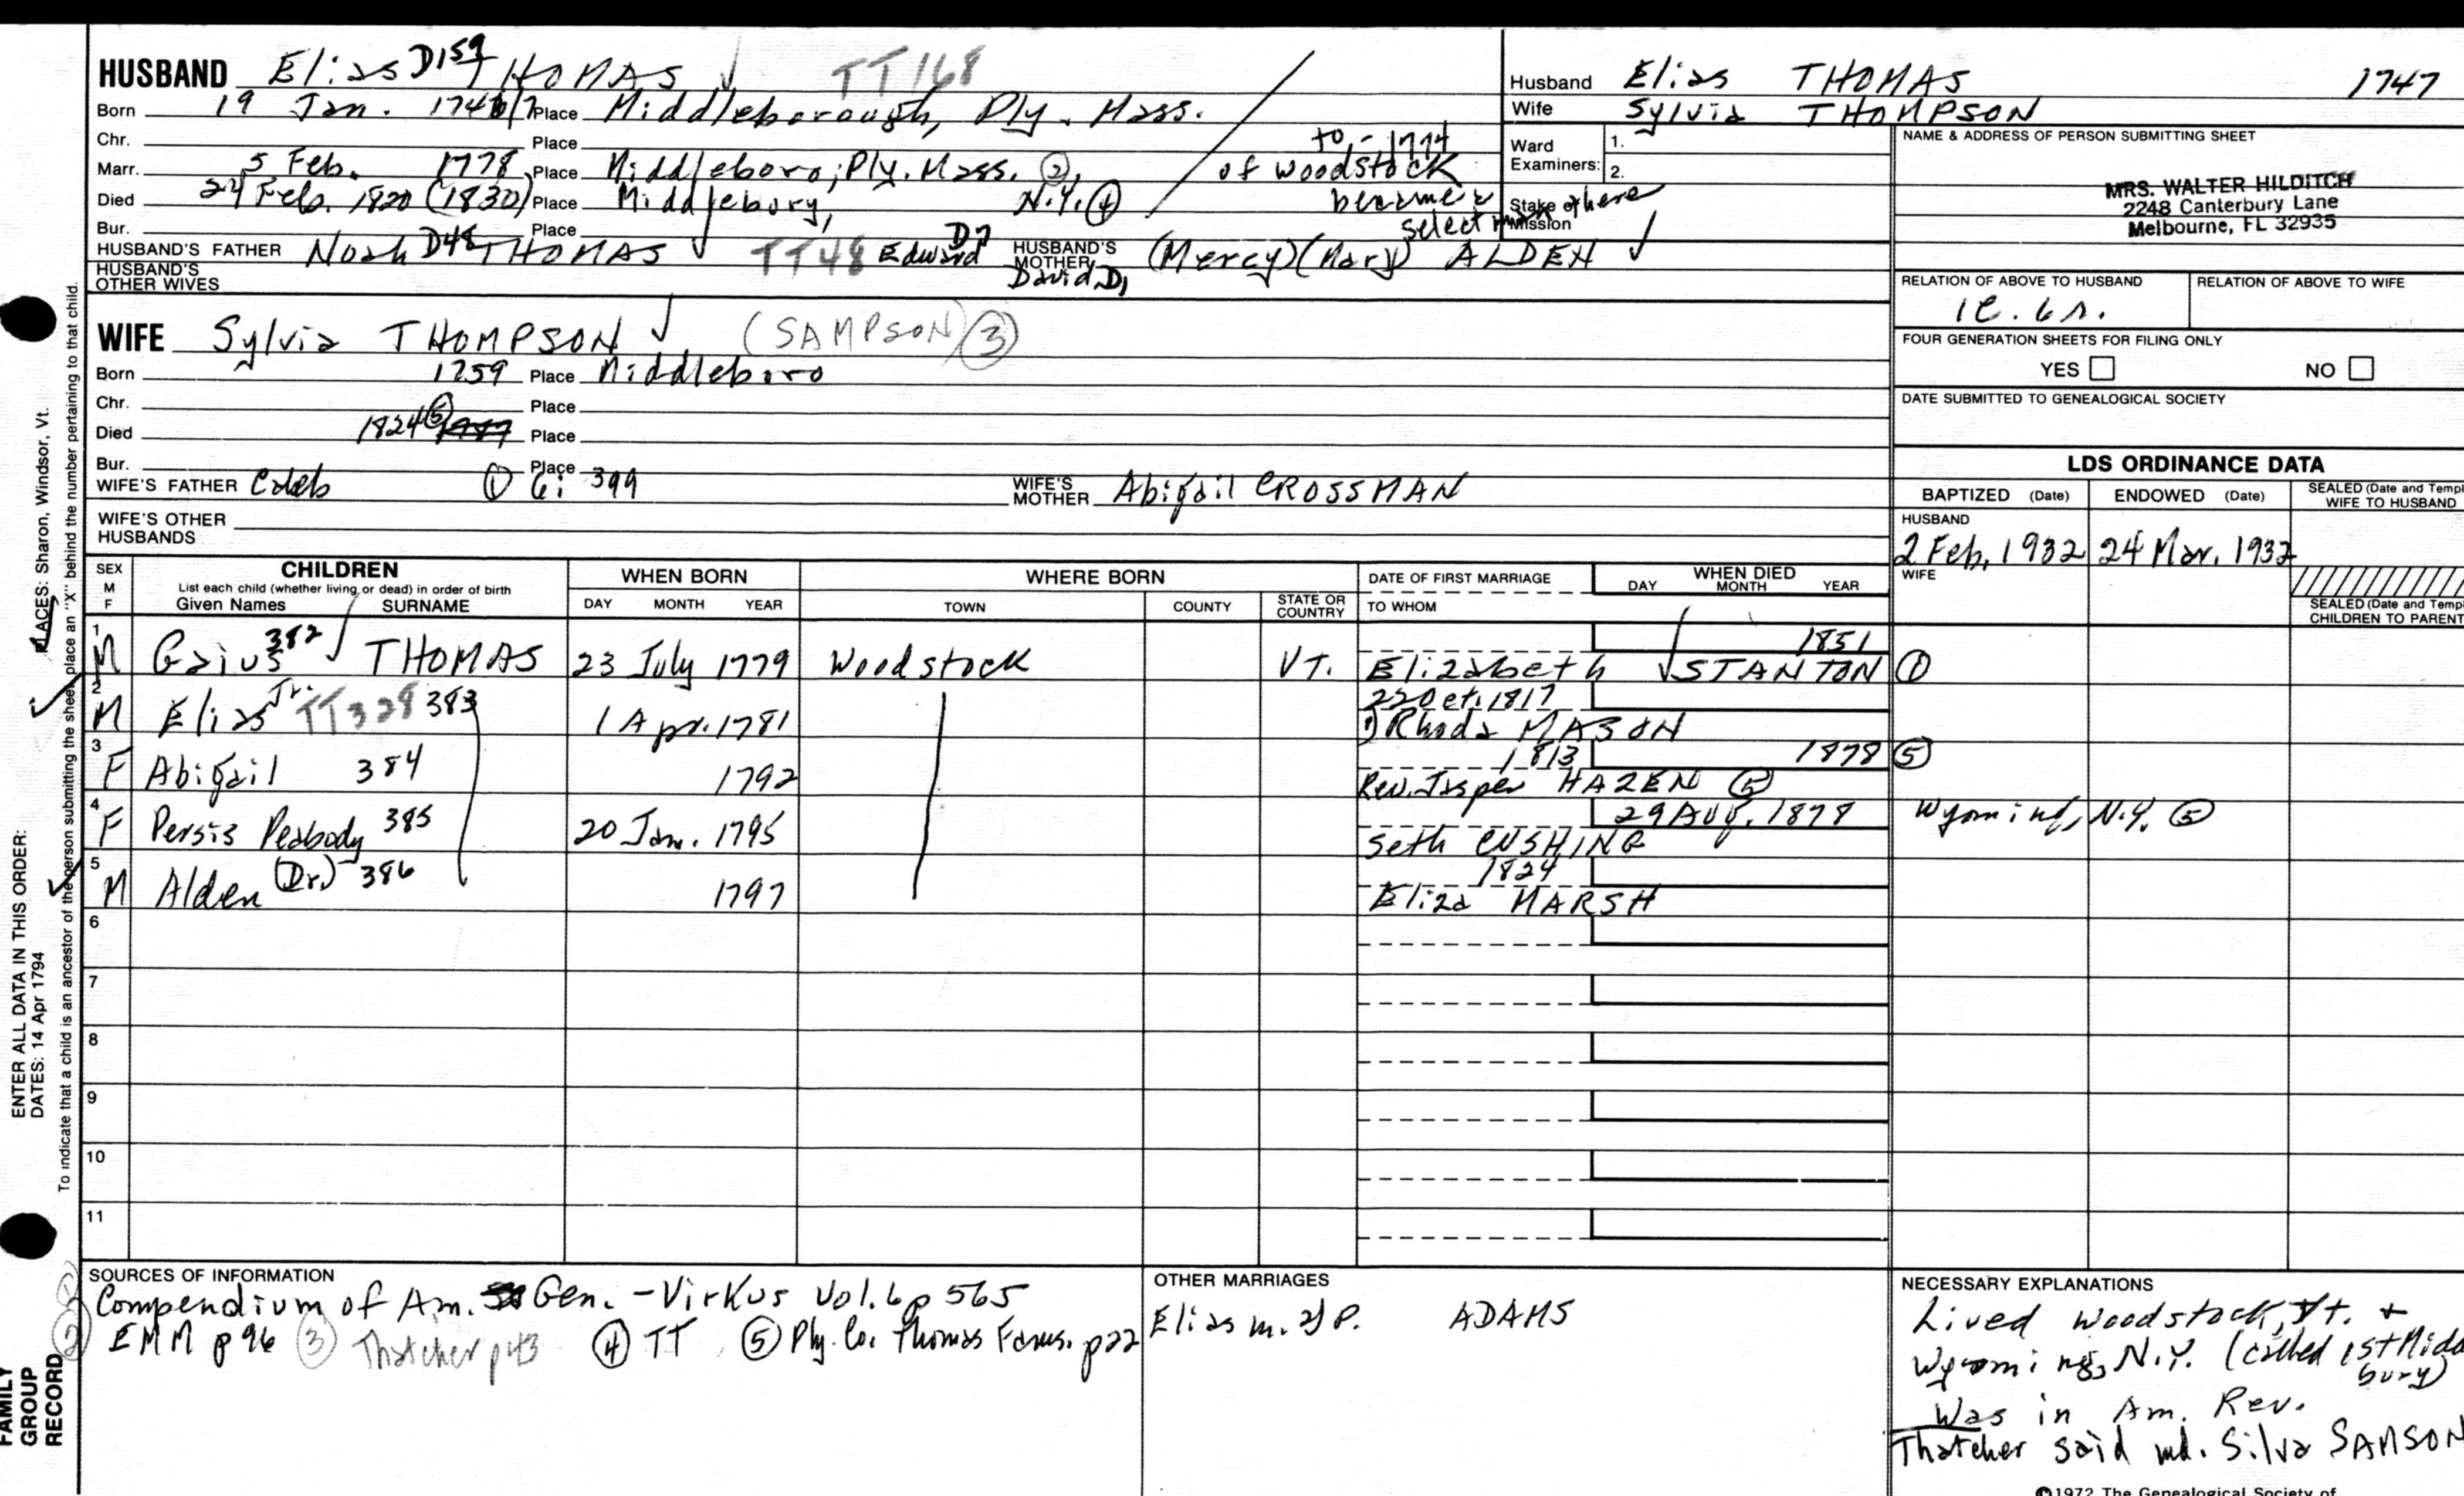 HUSBAND Elias D159 THOMAS ✓ TT168
Born 19 Jan. 1746/7 Place Middleborough, Ply. Mass.
Chr. Place
to - 1774
Marr. 5 Feb. 1778 Place Middleboro, Ply. Mass. ② of Woodstock
Died 24 Feb. 1820 (1830) Place Middlebury, N.Y. ④ became a
selectman there
Bur. Place
HUSBAND'S FATHER Noah D48 THOMAS ✓ TT48 Edward D7 HUSBAND'S MOTHER (Mercy) (Mary) ALDEN ✓
HUSBAND'S OTHER WIVES David D1
WIFE Sylvia THOMPSON ✓ (SAMPSON) ③
Born 1759 Place Middleboro
Chr. Place
Died 1824 ⑤ Place
Bur. Place
WIFE'S FATHER Caleb ① G: 399 WIFE'S MOTHER Abigail CROSSMAN
WIFE'S OTHER HUSBANDS
Husband Elias THOMAS 1747
Wife Sylvia THOMPSON
Ward 1.
Examiners: 2.
Stake or
Mission
NAME & ADDRESS OF PERSON SUBMITTING SHEET
MRS. WALTER HILDITCH
2248 Canterbury Lane
Melbourne, FL 32935
RELATION OF ABOVE TO HUSBAND RELATION OF ABOVE TO WIFE
FOUR GENERATION SHEETS FOR FILING ONLY
YES NO
DATE SUBMITTED TO GENEALOGICAL SOCIETY
LDS ORDINANCE DATA
BAPTIZED (Date) ENDOWED (Date) SEALED (Date and Templ
WIFE TO HUSBAND
HUSBAND
2 Feb. 1932 24 Mar. 1932
WIFE
SEALED (Date and Templ
CHILDREN TO PARENT
SEX M F CHILDREN WHEN BORN WHERE BORN DATE OF FIRST MARRIAGE WHEN DIED
List each child (whether living or dead) in order of birth DAY MONTH YEAR
Given Names SURNAME DAY MONTH YEAR TOWN COUNTY STATE OR COUNTRY TO WHOM
1 1851
M Gaius 382 ✓ THOMAS 23 July 1779 Woodstock VT. Elizabeth ✓ STANTON ①
2 22 Oct. 1817
M Elias Jr. TT328 383 1 Apr. 1781 1) Rhoda MASON
3 1813 1878 ⑤
F Abigail 384 1792 Rev. Jasper HAZEN ⑤
4 29 Aug. 1878 Wyoming, N.Y. ⑤
F Persis Peabody 385 20 Jan. 1795 Seth CUSHING
5 1824
M Alden (Dr.) 386 1797 Eliza MARSH
6
7
8
9
10
11
SOURCES OF INFORMATION
Compendium of Am. Gen. - Virkus Vol. 6 p 565
② EMM p 96 ③ Thatcher p 43 ④ TT ⑤ Ply. Co. Thomas Fams. p22
OTHER MARRIAGES
Elias m. 2) P. ADAMS
NECESSARY EXPLANATIONS
Lived Woodstock, Vt. +
Wyoming, N.Y. (called 1st Midd
bury)
Was in Am. Rev.
Thatcher said md. Silva SAMSON
©1972 The Genealogical Society of
PLACES: Sharon, Windsor, Vt.
To indicate that a child is an ancestor of the person submitting the sheet, place an "X" behind the number pertaining to that child.
ENTER ALL DATA IN THIS ORDER:
DATES: 14 Apr 1794
FAMILY
GROUP
RECORD